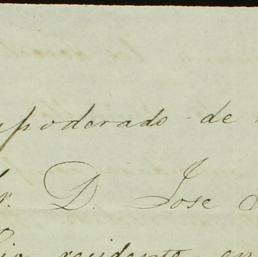 apoderado de
Sr. D. Jose
residente en